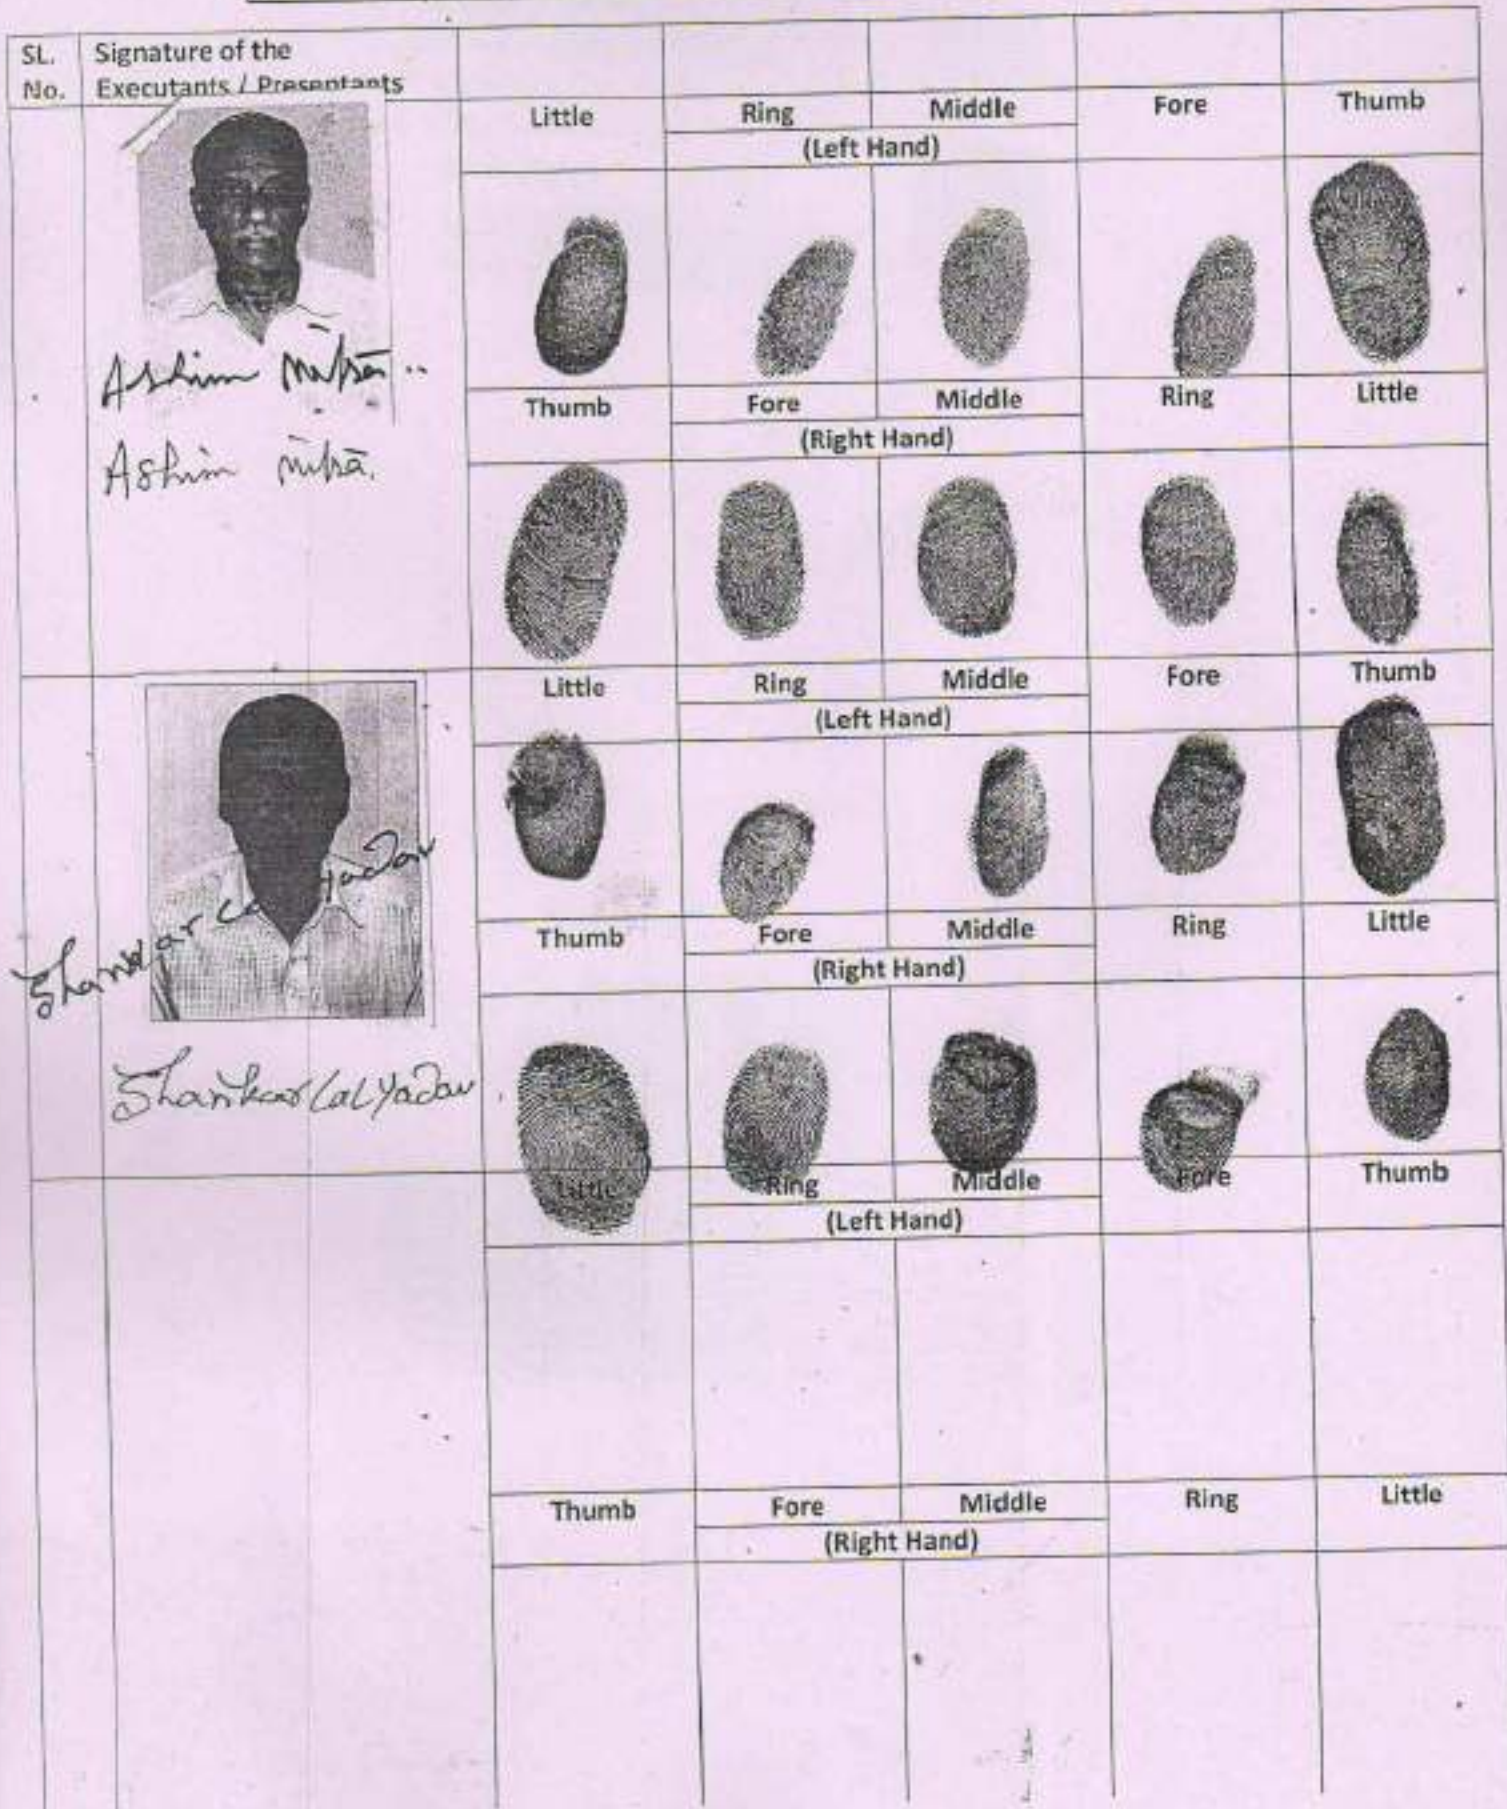 SL. No.
Signature of the
Executants / Presentants
Little Ring Middle Fore Thumb
(Left Hand)
Ashim Mitra
Thumb Fore Middle Ring Little
(Right Hand)
Ashim Mitra.
Little Ring Middle Fore Thumb
(Left Hand)
Shankar Lal Yadav
Thumb Fore Middle Ring Little
(Right Hand)
Shankar Lal Yadav
Little Ring Middle Fore Thumb
(Left Hand)
Thumb Fore Middle Ring Little
(Right Hand)